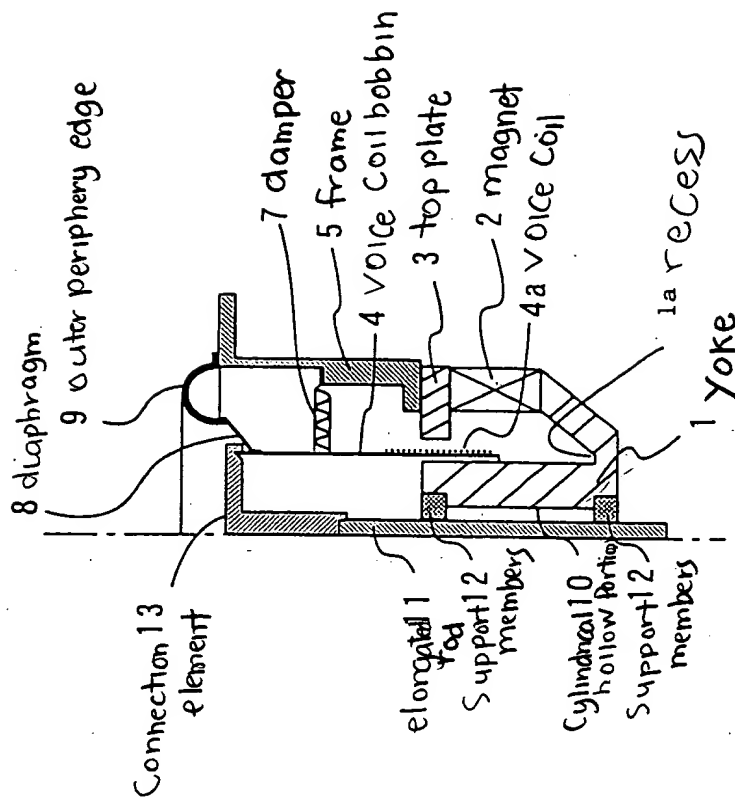 8 diaphragm
9 outer periphery edge
7 damper
5 frame
4 voice coil bobbin
3 top plate
2 magnet
4a voice coil
1a recess
1 Yoke
Connection 13
element
elongated 1
rod
Support 12
members
Cylindrical 10
hollow Portion
Support 12
members